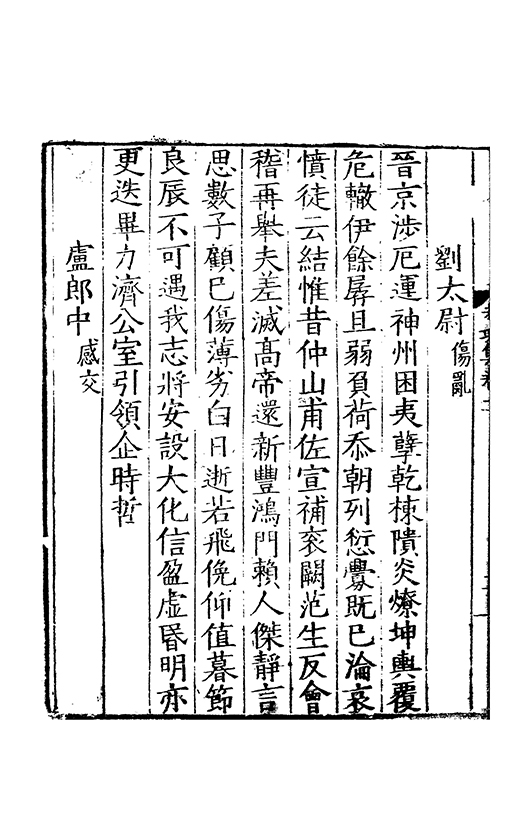 劉太尉傷亂
晉京涉厄運神州困夷孽乾棟隤炎燎坤輿覆
危轍伊餘孱且弱負荷忝朝列愆釁既已淪哀
憤徒云結惟昔仲山甫佐宣補袞闕范生反會
稽再舉夫差滅高帝還新豐鴻門賴人傑靜言
思數子顧已傷薄劣白日逝若飛俛仰值暮節
良辰不可遇我志將安設大化信盈虛昬明亦
更迭畢力濟公室引領企時哲
盧郎中感交